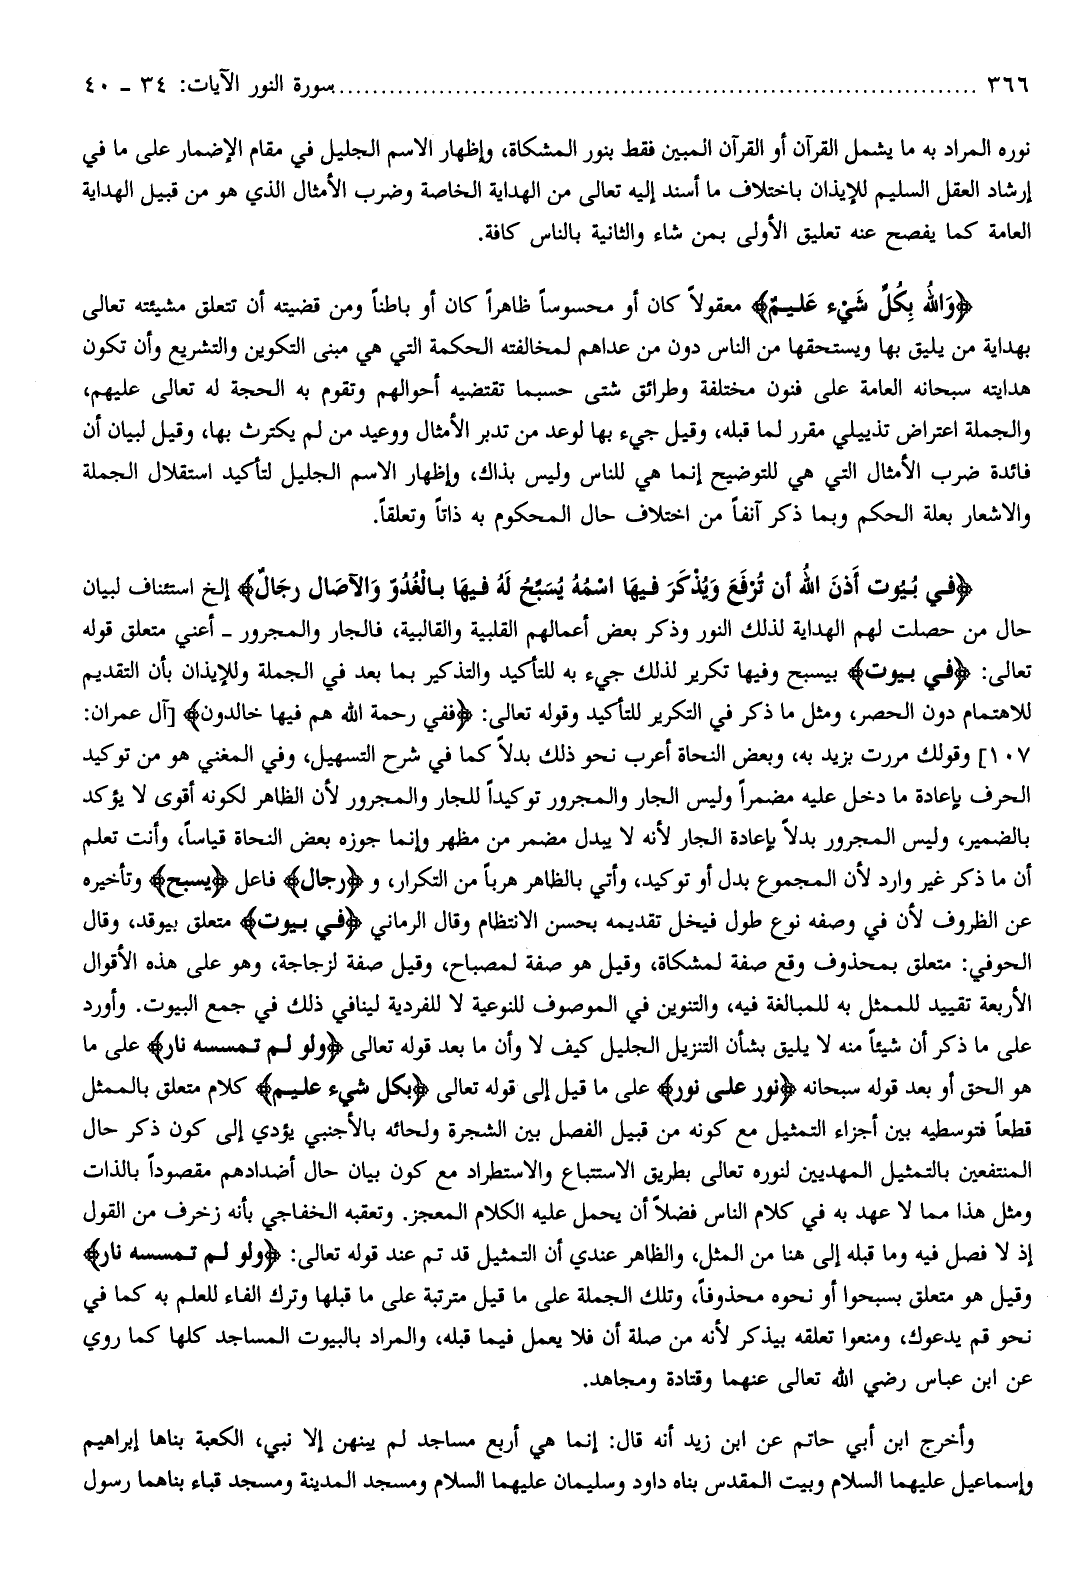 ٣٦٦ ........................................................................... سورة النور الآيات: ٣٤ - ٤٠
نوره المراد به ما يشمل القرآن أو القرآن المبين فقط بنور المشكاة، وإظهار الاسم الجليل في مقام الإضمار على ما في
إرشاد العقل السليم للإيذان باختلاف ما أسند إليه تعالى من الهداية الخاصة وضرب الأمثال الذي هو من قبيل الهداية
العامة كما يفصح عنه تعليق الأولى بمن شاء والثانية بالناس كافة.
﴿وَاللهُ بِكُلِّ شَيْء عَليمٌ﴾ معقولاً كان أو محسوساً ظاهراً كان أو باطناً ومن قضيته أن تتعلق مشيئته تعالى
بهداية من يليق بها ويستحقها من الناس دون من عداهم لمخالفته الحكمة التي هي مبنى التكوين والتشريع وأن تكون
هدايته سبحانه العامة على فنون مختلفة وطرائق شتى حسبما تقتضيه أحوالهم وتقوم به الحجة له تعالى عليهم،
والجملة اعتراض تذييلي مقرر لما قبله، وقيل جيء بها لوعد من تدبر الأمثال ووعيد من لم يكترث بها، وقيل لبيان أن
فائدة ضرب الأمثال التي هي للتوضيح إنما هي للناس وليس بذاك، وإظهار الاسم الجليل لتأكيد استقلال الجملة
والاشعار بعلة الحكم وبما ذكر آنفاً من اختلاف حال المحكوم به ذاتاً وتعلقاً.
﴿في بُيُوت أَذنَ اللهُ أن تُرْفَعَ وَيُذْكَرَ فيهَا اسْمُهُ يُسَبِّحُ لَهُ فيهَا بالْغُدُوّ وَالآصَال رجَالٌ﴾ إلخ استئناف لبيان
حال من حصلت لهم الهداية لذلك النور وذكر بعض أعمالهم القلبية والقالبية، فالجار والمجرور - أعني متعلق قوله
تعالى: ﴿في بيوت﴾ بيسبح وفيها تكرير لذلك جيء به للتأكيد والتذكير بما بعد في الجملة وللإيذان بأن التقديم
للاهتمام دون الحصر، ومثل ما ذكر في التكرير للتأكيد وقوله تعالى: ﴿ففي رحمة الله هم فيها خالدون﴾ [آل عمران:
١٠٧] وقولك مررت بزيد به، وبعض النحاة أعرب نحو ذلك بدلاً كما في شرح التسهيل، وفي المغني هو من توكيد
الحرف بإعادة ما دخل عليه مضمراً وليس الجار والمجرور توكيداً للجار والمجرور لأن الظاهر لكونه أقوى لا يؤكد
بالضمير، وليس المجرور بدلاً بإعادة الجار لأنه لا يبدل مضمر من مظهر وإنما جوزه بعض النحاة قياساً، وأنت تعلم
أن ما ذكر غير وارد لأن المجموع بدل أو توكيد، وأتي بالظاهر هرباً من التكرار، و ﴿رجال﴾ فاعل ﴿يسبح﴾ وتأخيره
عن الظروف لأن في وصفه نوع طول فيخل تقديمه بحسن الانتظام وقال الرماني ﴿في بيوت﴾ متعلق بيوقد، وقال
الحوفي: متعلق بمحذوف وقع صفة لمشكاة، وقيل هو صفة لمصباح، وقيل صفة لزجاجة، وهو على هذه الأقوال
الأربعة تقييد للممثل به للمبالغة فيه، والتنوين في الموصوف للنوعية لا للفردية لينافي ذلك في جمع البيوت. وأورد
على ما ذكر أن شيئاً منه لا يليق بشأن التنزيل الجليل كيف لا وأن ما بعد قوله تعالى ﴿ولو لم تمسسه نار﴾ على ما
هو الحق أو بعد قوله سبحانه ﴿نور على نور﴾ على ما قيل إلى قوله تعالى ﴿بكل شيء عليم﴾ كلام متعلق بالممثل
قطعاً فتوسطيه بين أجزاء التمثيل مع كونه من قبيل الفصل بين الشجرة ولحائه بالأجنبي يؤدي إلى كون ذكر حال
المنتفعين بالتمثيل المهديين لنوره تعالى بطريق الاستتباع والاستطراد مع كون بيان حال أضدادهم مقصوداً بالذات
ومثل هذا مما لا عهد به في كلام الناس فضلاً أن يحمل عليه الكلام المعجز. وتعقبه الخفاجي بأنه زخرف من القول
إذ لا فصل فيه وما قبله إلى هنا من المثل، والظاهر عندي أن التمثيل قد تم عند قوله تعالى: ﴿ولو لم تمسسه نار﴾
وقيل هو متعلق بسبحوا أو نحوه محذوفاً، وتلك الجملة على ما قيل مترتبة على ما قبلها وترك الفاء للعلم به كما في
نحو قم يدعوك، ومنعوا تعلقه بيذكر لأنه من صلة أن فلا يعمل فيما قبله، والمراد بالبيوت المساجد كلها كما روي
عن ابن عباس رضي الله تعالى عنهما وقتادة ومجاهد.
وأخرج ابن أبي حاتم عن ابن زيد أنه قال: إنما هي أربع مساجد لم يبنهن إلا نبي، الكعبة بناها إبراهيم
وإسماعيل عليهما السلام وبيت المقدس بناه داود وسليمان عليهما السلام ومسجد المدينة ومسجد قباء بناهما رسول